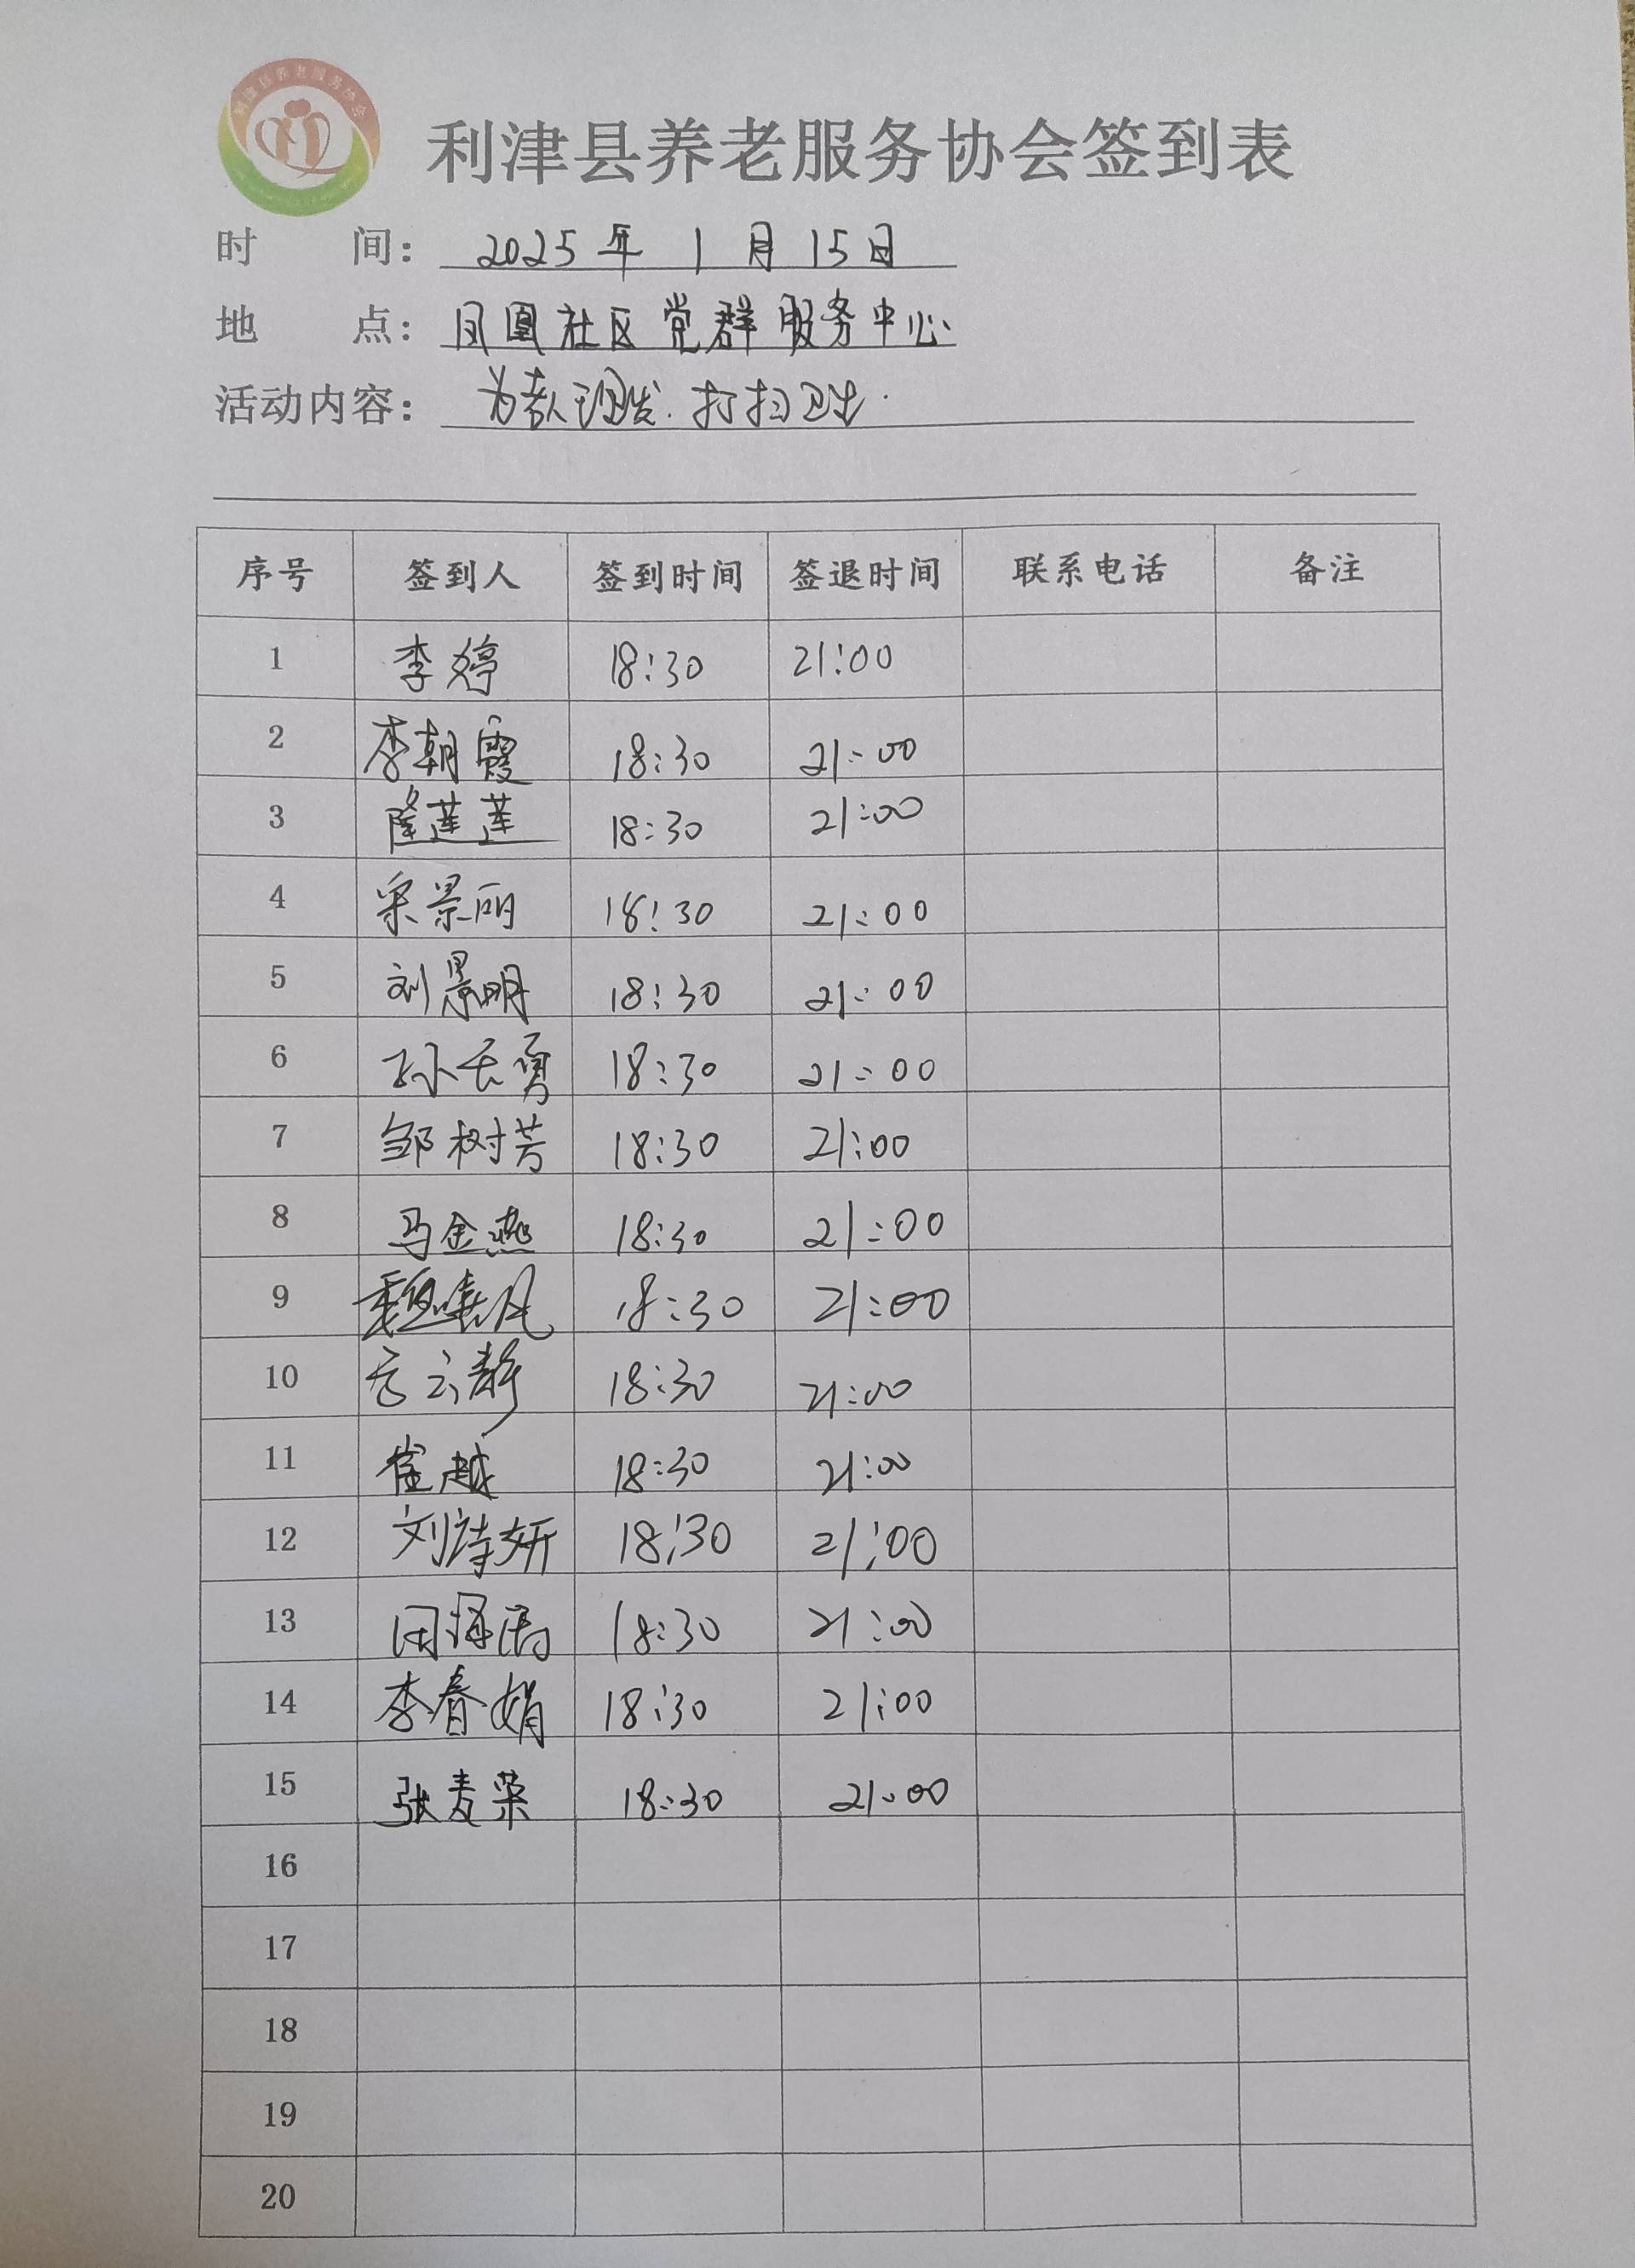 利津县养老服务协会
利津县养老服务协会签到表
时 间: 2025年1月15日
地 点: 凤凰社区党群服务中心
活动内容: 为老人理发.打扫卫生.
序号 签到人 签到时间 签退时间 联系电话 备注
1 李婷 18:30 21:00
2 李朝霞 18:30 21:00
3 隆莲莲 18:30 21:00
4 宋景丽 18:30 21:00
5 刘景明 18:30 21:00
6 孙长勇 18:30 21:00
7 邹树芳 18:30 21:00
8 马金燕 18:30 21:00
9 魏春凤 18:30 21:00
10 云静 18:30 21:00
11 崔越 18:30 21:00
12 刘诗妍 18:30 21:00
13 18:30 21:00
14 李春娟 18:30 21:00
15 张麦荣 18:30 21:00
16
17
18
19
20